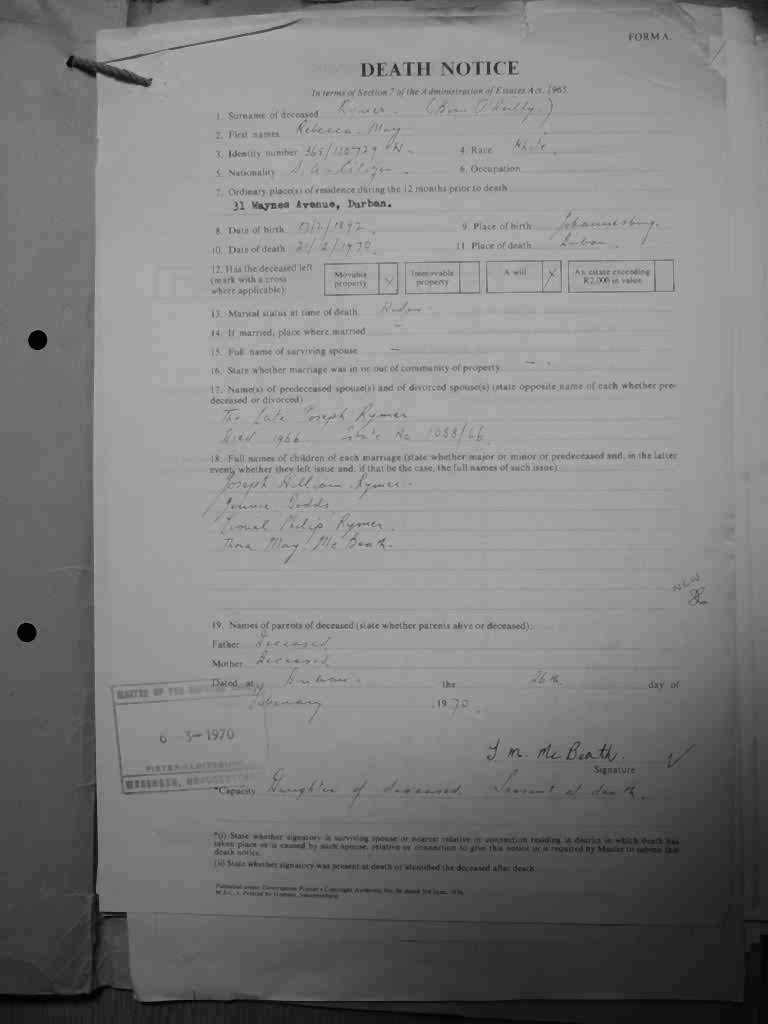 FORM A.
DEATH NOTICE
In terms of Section 7 of the Administration of Estates Act, 1965.
1. Surname of deceased Rymer (Born O'Reilly.)
2. First names Rebecca May
3. Identity number 365/120729 W. 4. Race White
5. Nationality S.A. Citizen 6. Occupation
7. Ordinary place(s) of residence during the 12 months prior to death
31 Waynes Avenue, Durban.
8. Date of birth 17/2/1892 9. Place of birth Johannesburg.
10. Date of death 21/2/1970. 11. Place of death Durban.
12. Has the deceased left
(mark with a cross
where applicable):
Movable property X Immovable property A will X An estate exceeding R2,000 in value
13. Marital status at time of death Widow
14. If married, place where married –
15. Full name of surviving spouse –
16. State whether marriage was in or out of community of property –
17. Name(s) of predeceased spouse(s) and of divorced spouse(s) (state opposite name of each whether pre-
deceased or divorced)
The Late Joseph Rymer
Died 1966 Estate No 1088/66
18. Full names of children of each marriage (state whether major or minor or predeceased and, in the latter
event, whether they left issue and, if that be the case, the full names of such issue)
Joseph William Rymer.
Dodds
Philip Rymer.
Thora May Mc Beath.
NEW
19. Names of parents of deceased (state whether parents alive or deceased):
Father Deceased
Mother Deceased
Dated at Durban the 26th day of
February 1970.
MASTER OF THE
6 3-1970
PIETERMARITZBURG
T M. Mc Beath.
Signature
*Capacity Daughter of deceased. Present at death.
*(i) State whether signatory is surviving spouse or nearest relative or connection residing in district in which death has
taken place or is caused by such spouse, relative or connection to give this notice or is required by Master to submit this
death notice.
(ii) State whether signatory was present at death or identified the deceased after death.